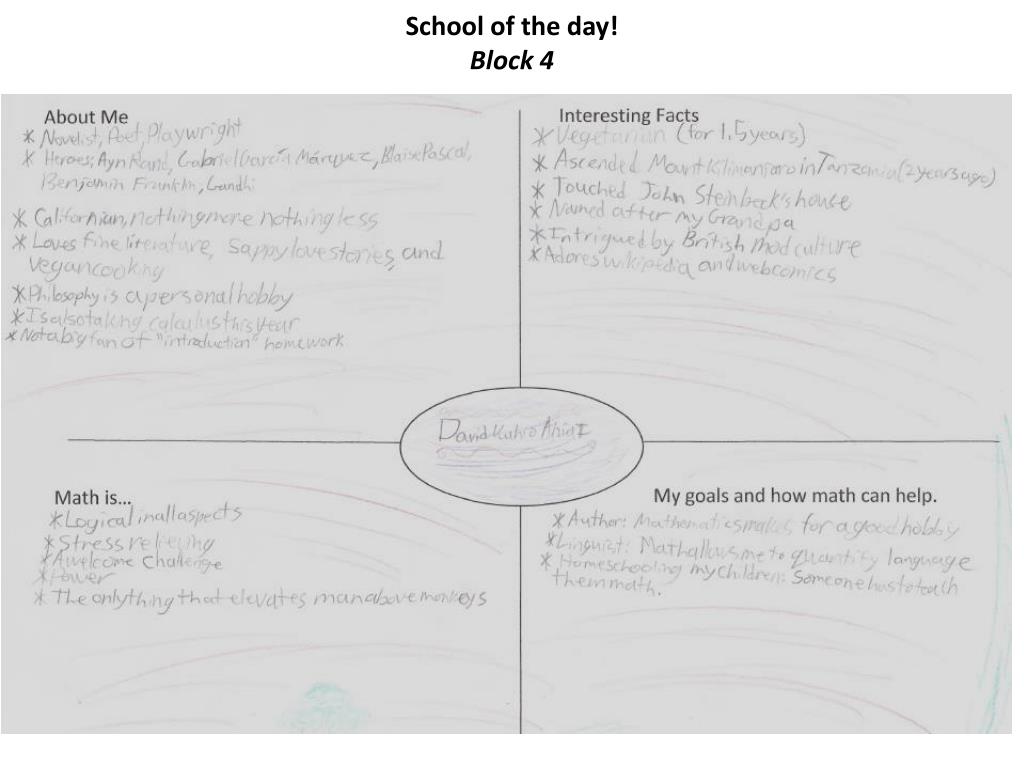 School of the day!
Block 4
About Me
* Novelist, Poet, Playwright
* Heroes; Ayn Rand, Gabriel García Márquez, Blaise Pascal,
Benjamin Franklin, Gandhi
* Californian, nothing more nothing less
* Loves fine literature, sappy love stories, and
vegan cooking
* Philosophy is a personal hobby
* Is also taking calculus this year
* Not a big fan of "introduction" homework
Interesting Facts
* Vegetarian (for 1.5 years)
* Ascended Mount Kilimanjaro in Tanzania (2 years ago)
* Touched John Steinbeck's house
* Named after my Grandpa
* Intrigued by British mod culture
* Adores wikipedia and webcomics
David
Math is...
* Logical in all aspects
* Stress relieving
* A welcome challenge
* Power
* The only thing that elevates man above monkeys
My goals and how math can help.
* Author: Mathematics makes for a good hobby
* Linguist: Math allows me to quantify language
* Homeschooling my children: Someone has to teach
them math.